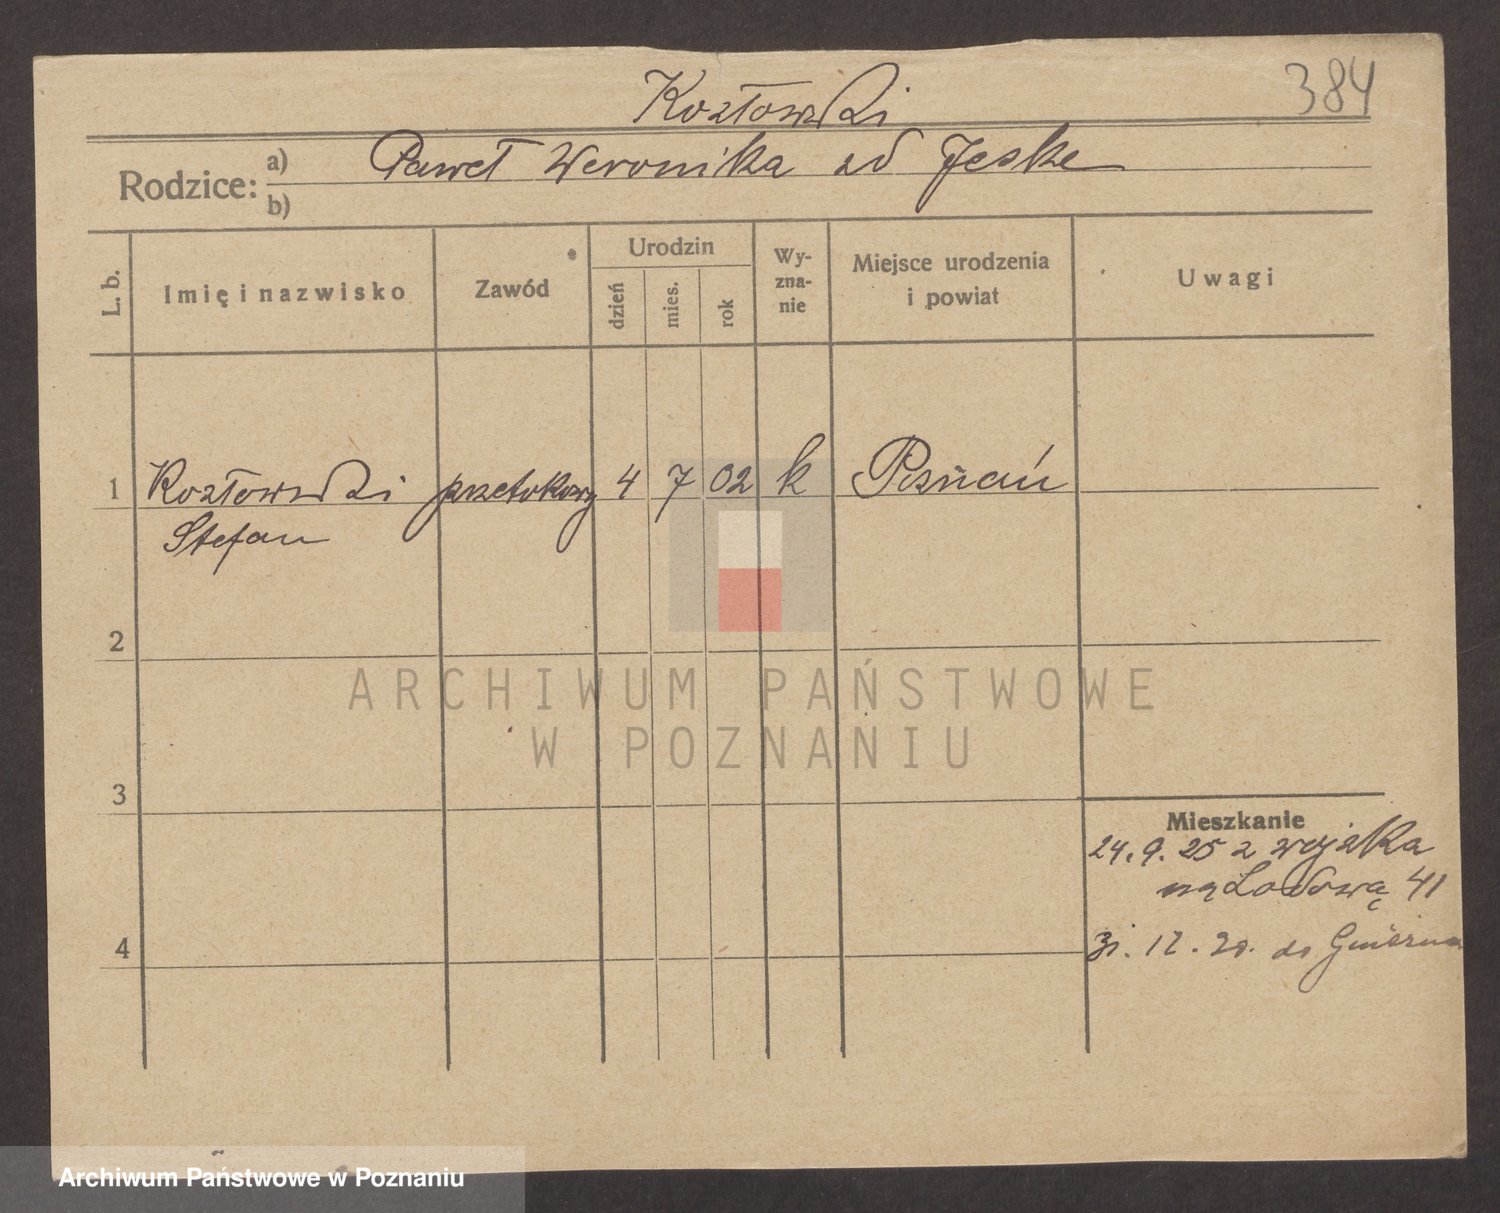 384
Kozłowski
Rodzice:
a) Paweł Weronika zd Jeske
b)
L. b.
Imię i nazwisko
Zawód
Urodzin
dzień
mies.
rok
Wy-
zna-
nie
Miejsce urodzenia
i powiat
Uwagi
1 Kozłowski przetokowy 4 7 02 k Poznań
Stefan
2
3
4
Mieszkanie
24. 9. 25 z wojska
na Lodową 41
31. 12. do Gniezna
ARCHIWUM PAŃSTWOWE
W POZNANIU
Archiwum Państwowe w Poznaniu